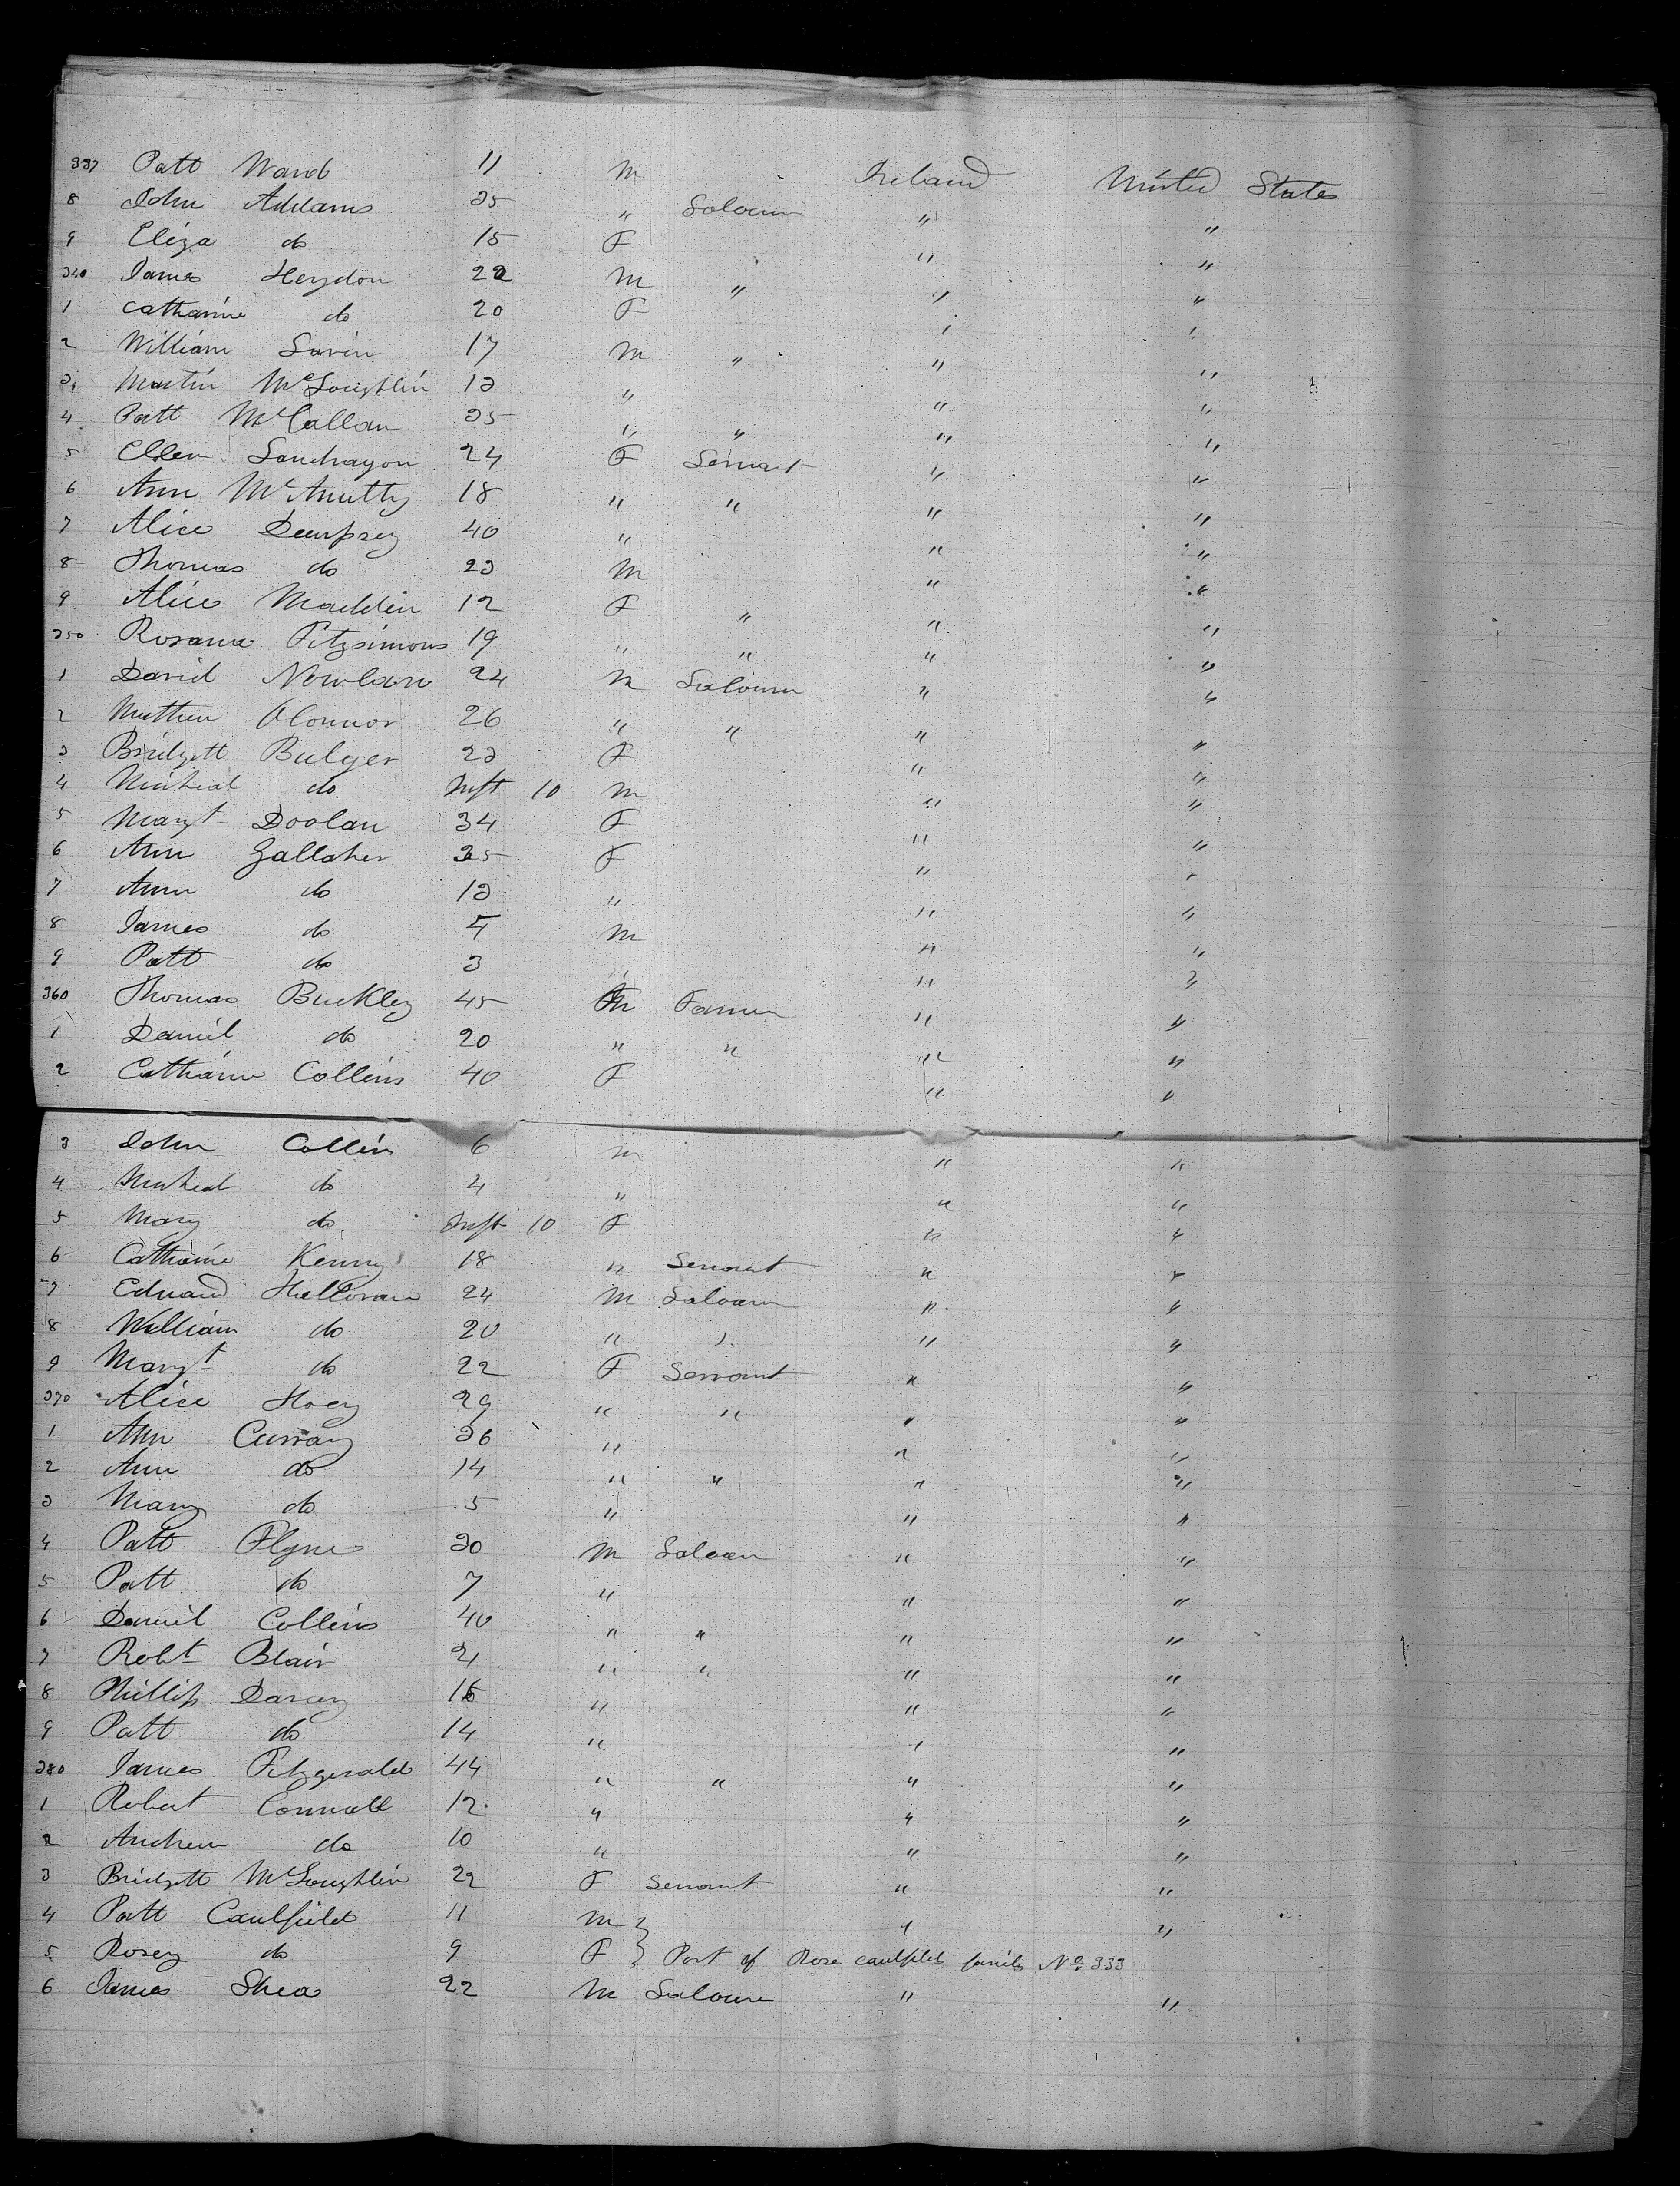 337 Patt Ward 11 M Ireland United States
8 John Addams 35 " Labourer " "
9 Eliza do 15 F " "
340 James Heydon 22 M " " "
1 Catharine do 20 F " "
2 William 17 M " " "
3 Martin McLoughlin 13 " " "
4 Patt McCallan 35 " " " "
5 Ellen 24 F Servant " "
6 Ann McAnulty 18 " " " "
7 Alice Dempsey 40 " " "
8 Thomas do 23 M " "
9 Alice Maddin 12 F " " "
350 Rosana Fitzsimons 19 " " " "
1 David Newlan 24 M Labourer " "
2 Mathew OConnor 26 " " " "
3 Bridgett Bulger 23 F " "
4 Micheal do Inft 10 M " "
5 Margt Doolan 34 F " "
6 Ann Gallaher 35 F " "
7 Ann do 13 " " "
8 James do 5 M " "
9 Patt do 3 " " "
360 Thomas Buckley 45 M Farmer " "
1 Daniel do 20 " " " "
2 Catharine Collins 40 F " "
3 John Collins 6 M " "
4 Micheal do 4 " " "
5 Mary do Inft 10 F " "
6 Catharine Kenny 18 " Servant " "
7 Edward Halloran 24 M Labourer " "
8 William do 20 " " " "
9 Margt do 22 F Servant " "
370 Alice Hoey 29 " " " "
1 Ann Curray 36 " " "
2 Ann do 14 " " " "
3 Mary do 5 " " "
4 Patt Flyne 30 M Labourer " "
5 Patt do 7 " " "
6 Daniel Collins 40 " " " "
7 Robt Blair 21 " " " "
8 Phillip Darcey 16 " " "
9 Patt do 14 " " "
380 James Fitzgerald 44 " " " "
1 Robert Connell 12 " " "
2 Andrew do 10 " " "
3 Bridgett McLoughlin 22 F Servant " "
4 Patt Caulfield 11 M } " "
5 Rosey do 9 F } Part of Rose caulfild family No 333
6 James Shea 22 M Labourer " "